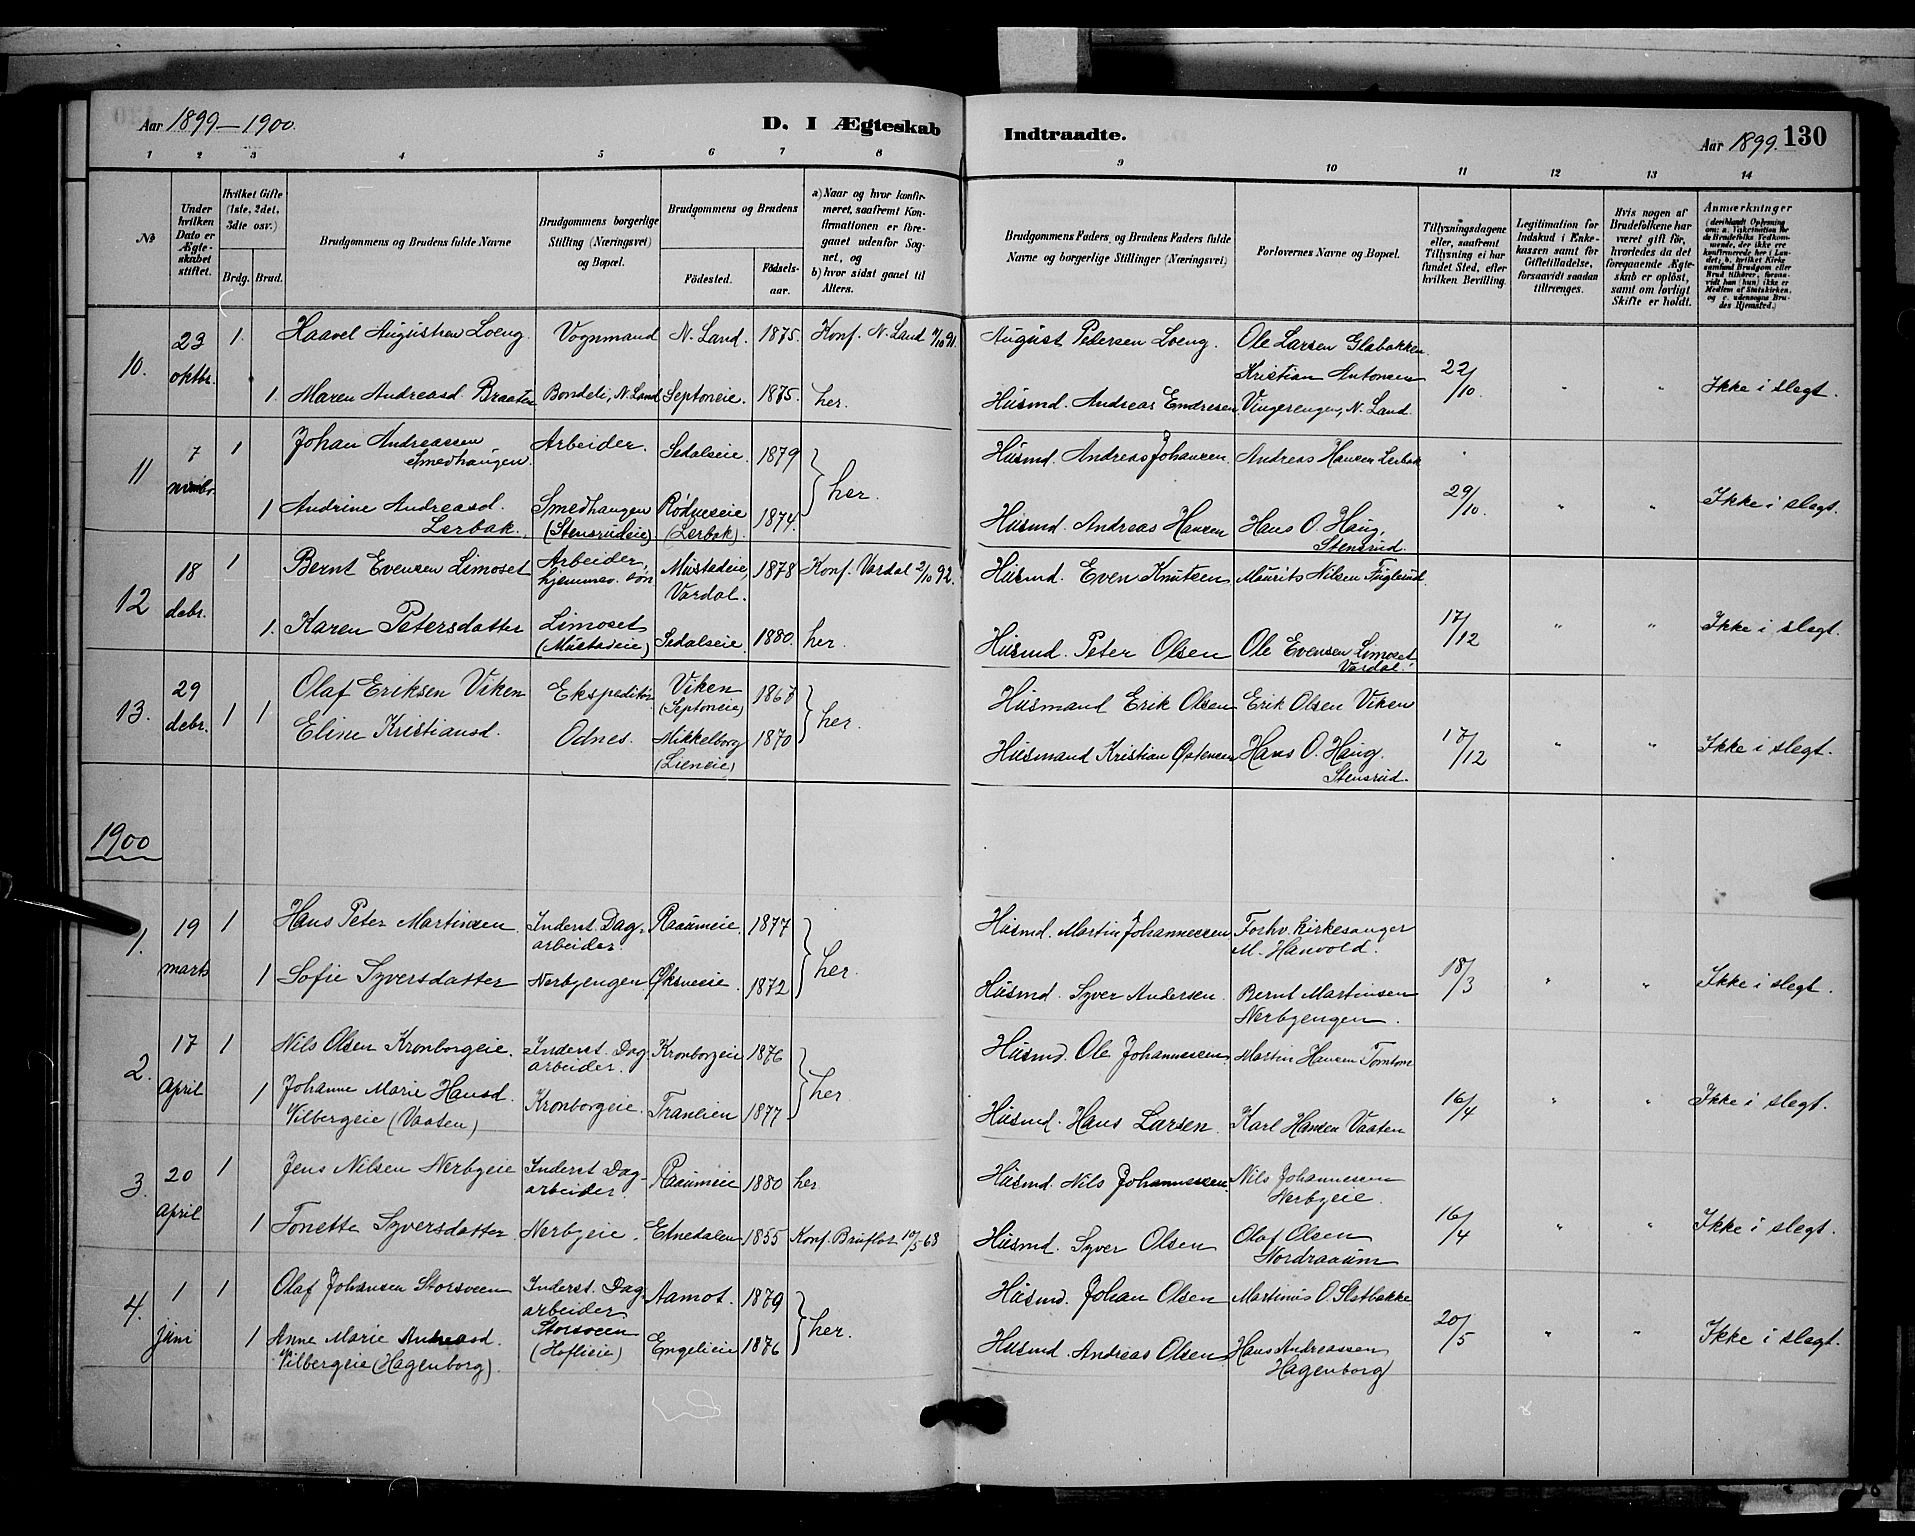 Aar 1899-1900.
D. I Ægteskab
Indtraadte.
Aar 1899. 130
1 2 3 4 5 6 7 8
9 10 11 12 13 14
No
Under hvilken Dato er Ægteskabet stiftet.
Hvilket Gifte (1ste, 2det, 3die osv.)
Brdg. Brud.
Brudgommens og Brudens fulde Navne
Brudgommens borgerlige Stilling (Næringsvei) og Bopæl.
Brudgommens og Brudens
Födested. Födselsaar.
a) Naar og hvor konfirmeret, saafremt Konfirmationen er foregaaet udenfor Sognet, og
b) hvor sidst gaaet til Alters.
Brudgommens Faders og Brudens Faders fulde Navne og borgerlige Stillinger (Næringsvei)
Forlovernes Navne og Bopæl.
Tillysningsdagene eller, saafremt Tillysning ei har fundet Sted, efter hvilken Bevilling.
Legitimation for Indskud i Enkekassen samt for Giftetilladelse, forsaavidt saadan tiltrænges.
Hvis nogen af Brudefolkene har været gift för, hvorledes da det foregaaende Ægteskab er oplöst, samt om lovligt Skifte er holdt.
Anmærkninger
10. 23 oktbr. 1. Haavel Augustsen Loeng. Vognmand N. Land. 1875. Konf. N. Land 11/10 91. August Petersen Loeng. Ole Larsen Glabakken.
Kristian Antonsen 22/10. " "
1. Maren Andreasd. Braaten Bondeli, N. Land Septoneie. 1875. her. Husmd. Andreas Endresen Vingerengen, N. Land. Ikke i slegt.
11 7 novbr. 1 Johan Andreassen Arbeider. Sedalseie. 1879 Husmd. Andreas Johansen. Andreas Hansen Lerbak
Smedhaugen. her.
1 Andrine Andreasd. Smedhaugen Rödneseie 1874. Husmd. Andreas Hansen Hans O. Haug, 29/10. " " Ikke i slegt.
Lerbak. (Stensrudeie) (Lerbak). Stensrud.
12 18 debr. 1 Bernt Evensen Limoset Arbeider, Mustadeie, 1878 Konf. Vardal 2/10 92. Husmd. Even Knutsen Maurits Nilsen Fuglerud.
hjemmev. sön Vardal.
1. Karen Petersdatter Limoset Sedalseie 1880. her. Husmd. Peter Olsen Ole Evensen Limoset 17/12 " " Ikke i slegt.
(Mustadeie) Vardal.
13. 29 debr. 1 1 Olaf Eriksen Viken Ekspeditör Viken 1867 her. Husmand Erik Olsen Erik Olsen Viken
(Septoneie)
Eline Kristiansd. Odnes. Mikkelborg 1870 Husmand Kristian Östensen Hans O. Haug. 17/12 " " Ikke i slegt.
(Lieneie) Stensrud.
1900
1. 19 marts 1 Hans Peter Martinsen Inderst. Dag- Raaumeie. 1877 Husmd. Martin Johannessen Forhv. kirkesanger
arbeider. her. M. Hanvold.
1 Sofie Syversdatter Nerbyengen Öksneeie. 1872 Husmd. Syver Andersen. Bernt Martinsen 18/3 " " Ikke i slegt.
Nerbyengen.
2. 17 April 1 Nils Olsen Kronborgeie. Inderst. Dag- Kronborgeie 1876 Husmd. Ole Johannessen Martin Hansen Tomten
arbeider. her.
1 Johanne Marie Hansd. Kronborgeie. Tranlien 1877 Husmd. Hans Larsen. Karl Hansen Vaaten 16/4 " " Ikke i slegt.
Vilbergeie (Vaaten)
3. 20 April 1 Jens Nilsen Nerbyeie Inderst Dag- Raaumeie 1880 her. Husmd. Nils Johannessen. Nils Johannessen
arbeider. Nerbyeie.
1 Tonette Syversdatter Nerbyeie. Etnedalen 1855 Konf. Bruflat 10/5 68 Husmd. Syver Olsen Olaf Olsen 16/4 " " Ikke i slegt.
Nordraaum
4. 1 juni 1 Olaf Johansen Storsveen Inderst. Dag- Aamot. 1879 Husmd. Johan Olsen Martinus O. Slatbakke
arbeider her.
1 Anne Marie Andreasd. Storsveen Engelieie 1876 Husmd. Andreas Olsen Hans Andreassen 20/5 " " Ikke i slegt.
Vilbergeie (Hagenborg). (Hoflieie) Hagenborg